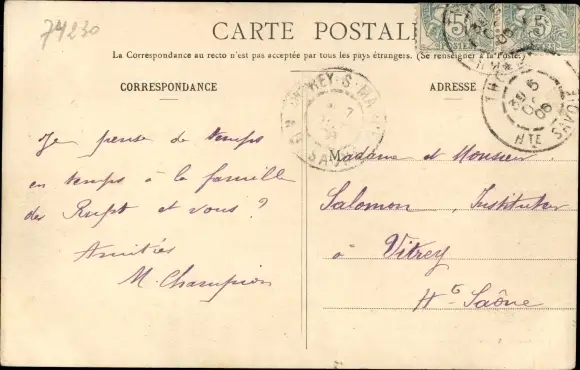 74230
CARTE POSTALE
La Correspondance au recto n'est pas acceptée par tous les pays étrangers. (Se renseigner à la Poste.)
CORRESPONDANCE
ADRESSE
Je pense de temps
en temps à la famille
de Rupt et vous ?
Amitiés
M. Champion
Madame et Monsieur
Salomon, Instituteur
à Vitrey
Hte Saône
5
POSTES
5
POSTES
HTE SAVOIE